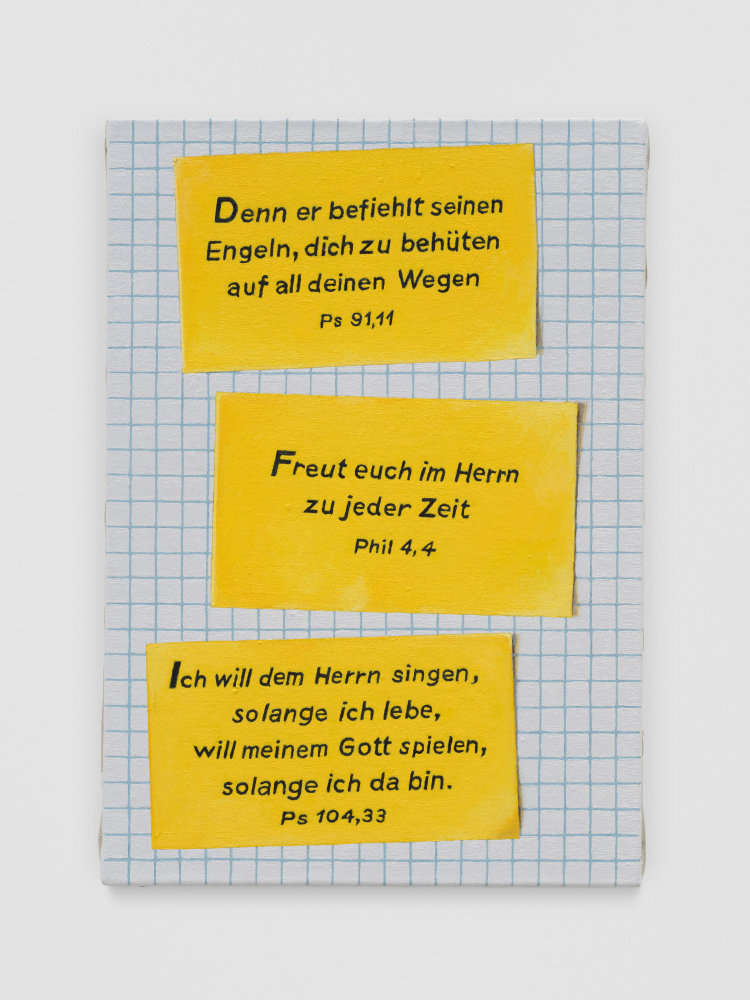 Denn er befiehlt seinen
Engeln, dich zu behüten
auf all deinen Wegen
Ps 91,11
Freut euch im Herrn
zu jeder Zeit
Phil 4,4
Ich will dem Herrn singen,
solange ich lebe,
will meinem Gott spielen,
solange ich da bin.
Ps 104,33